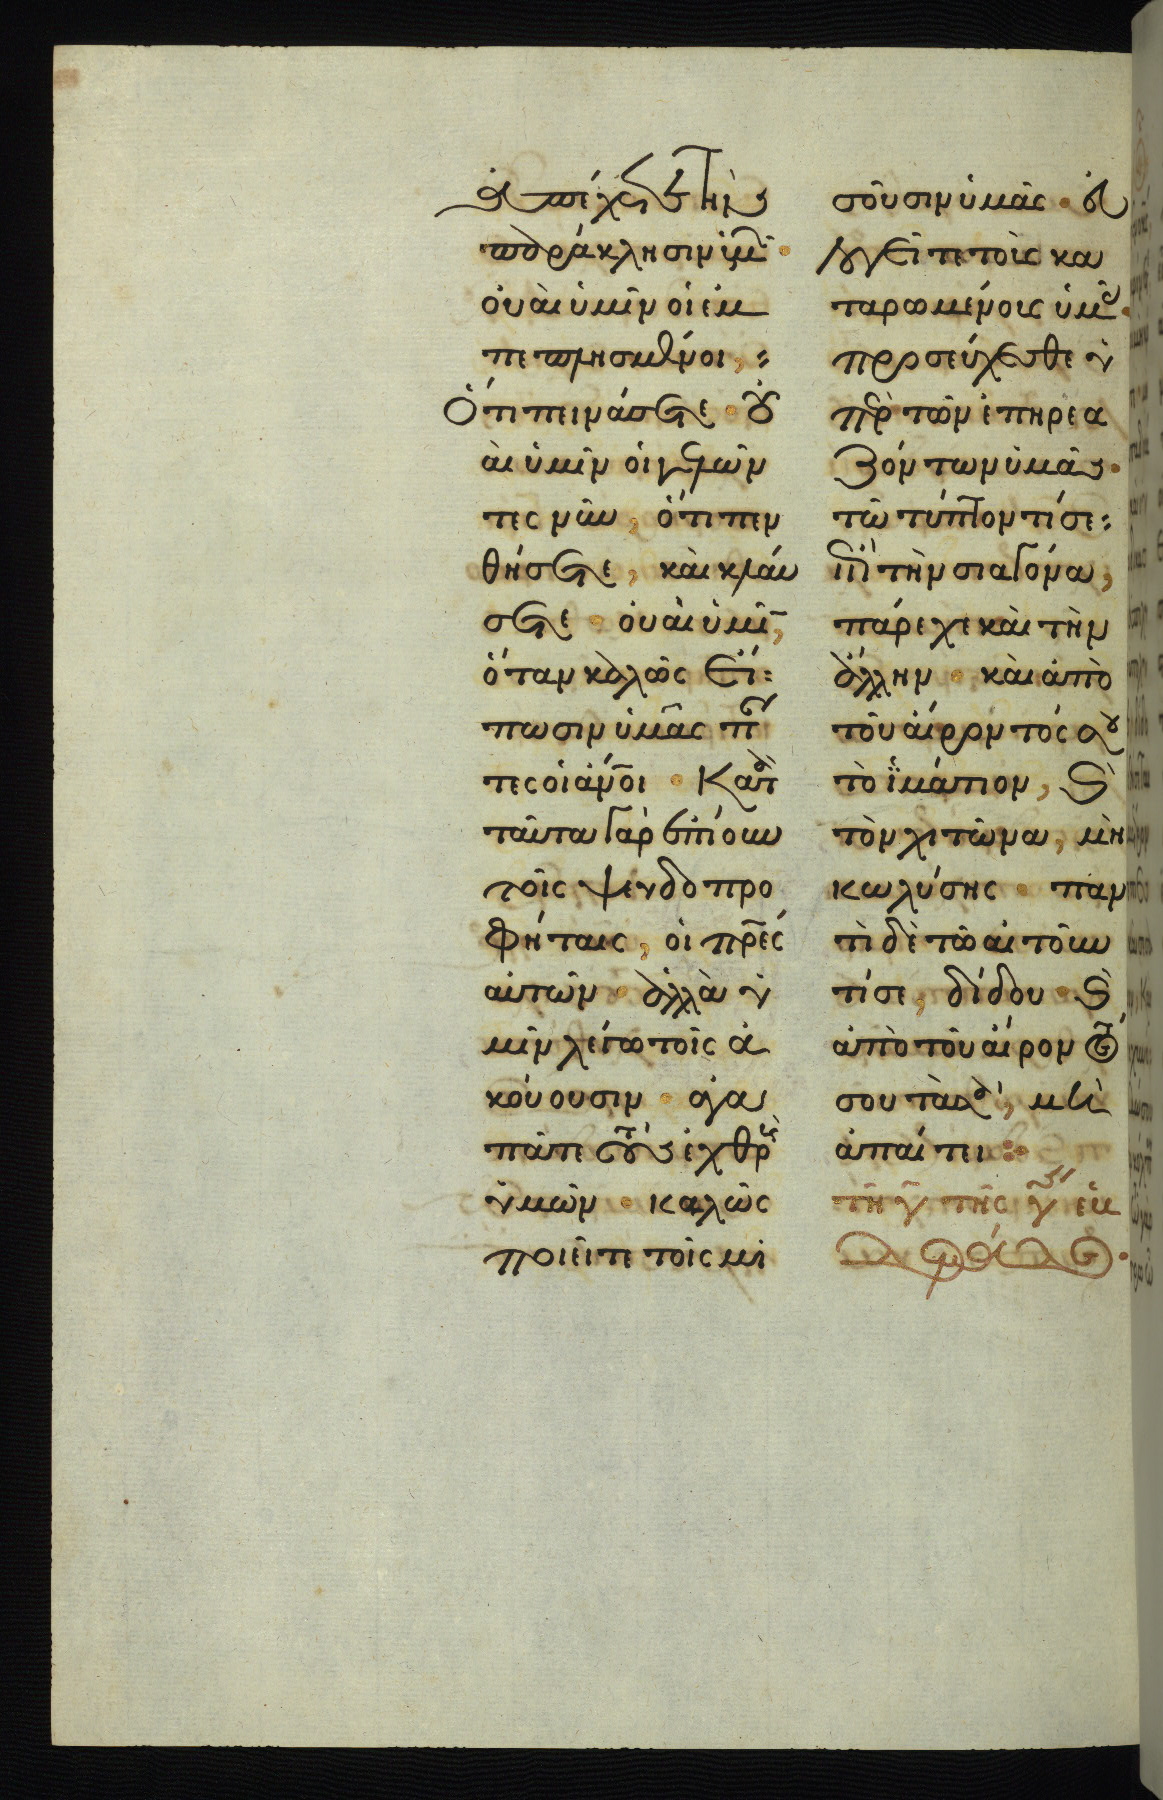 ἀπέχετε τὴν
παράκλησιν ὑμῶν.
οὐαὶ ὑμῖν οἱ ἐμ
πεπλησμένοι,
Ὅτι πεινάσετε. οὐ
αὶ ὑμῖν οἱ γελῶν
τες νῦν, ὅτι πεν
θήσετε, καὶ κλαύ
σετε. οὐαὶ ὑμῖν,
ὅταν καλῶς εἴ
πωσιν ὑμᾶς πάν
τες οἱ ἄνοι. Κατὰ
ταῦτα γὰρ ἐποίουν
τοῖς ψευδοπρο
φήταις, οἱ πρες
αὐτῶν. ἀλλὰ ὑ
μῖν λέγω τοῖς ἀ
κούουσιν. ἀγα
πᾶτε τοὺς ἐχθροὺς
ὑμῶν. καλῶς
ποιεῖτε τοῖς μι
σοῦσιν ὑμᾶς. εὐ
λογεῖτε τοὺς κα
ταρωμένους ὑμῖν.
προσεύχεσθε ὑ
πὲρ τῶν ἐπηρεα
ζόντων ὑμᾶς.
τῶ τύπτοντί σε
ἐπὶ τὴν σιαγόνα,
πάρεχε καὶ τὴν
ἄλλην. καὶ ἀπὸ
τοῦ αἴροντός σου
τὸ ἱμάτιον, καὶ
τὸν χιτῶνα, μὴ
κωλύσῃς. παν
τὶ δὲ τῶ αἰτοῦν
τί σε, δίδου. καὶ
ἀπὸ τοῦ αἴροντος
σου τὰ σὰ, μὴ
ἀπαίτει
τῇ γ τῆς γ ἑβ